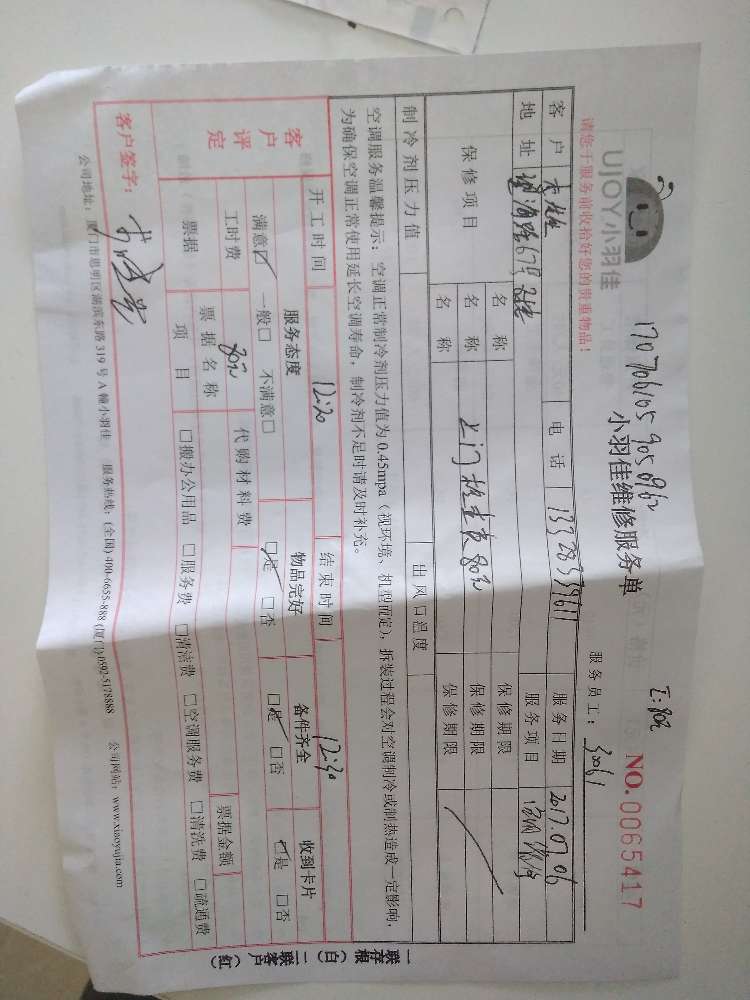 170706105905962
工:80元
UJOY小羽佳
小羽佳维修服务单
NO.0065417
请您于服务前收拾好您的贵重物品!
服务员工: 30061
客户 李先生 电话 服务日期 2017.07.06
地址 服务项目 空调维修
保修项目 名称 保修期限
名称 上门检查费80元 保修期限
名称 保修期限
制冷剂压力值 出风口温度
空调服务温馨提示:空调正常制冷剂压力值为0.45mpa(视环境、机型而定),拆装过程会对空调制冷或制热造成一定影响,
为确保空调正常使用延长空调寿命,制冷剂不足时请及时补充。
客户评定
开工时间 12:20 结束时间 12:30
服务态度 物品完好 备件齐全 收到卡片
满意☑ 一般□ 不满意□ ☑是 □否 ☑是 □否 ☑是 □否
工时费 80元 代购材料费
票据 票据名称 票据金额
项目 □搬办公用品 □服务费 □清洁费 □空调服务费 □清洗费 □疏通费
客户签字:
公司地址:厦门市思明区湖滨东路319号A幢小羽佳 服务热线:(全国)400-6655-888 (厦门)0592-5178888 公司网站:www.xiaoyujia.com
一联存根(白) 二联客户(红)